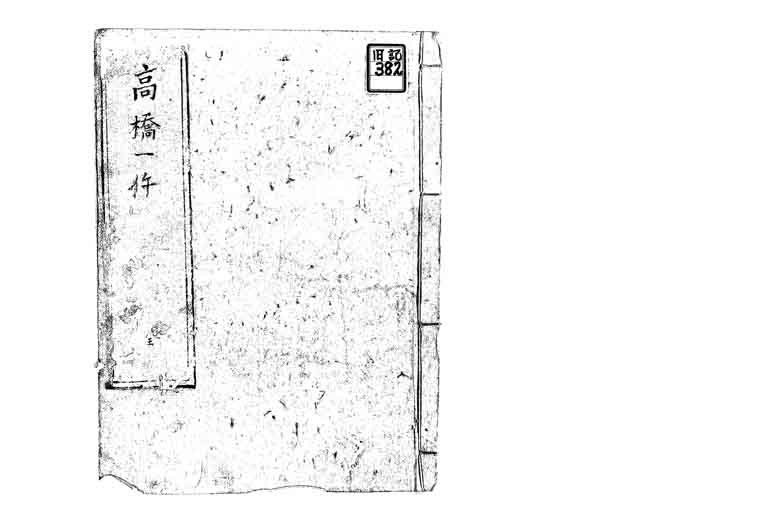 旧記
382
高橋一件